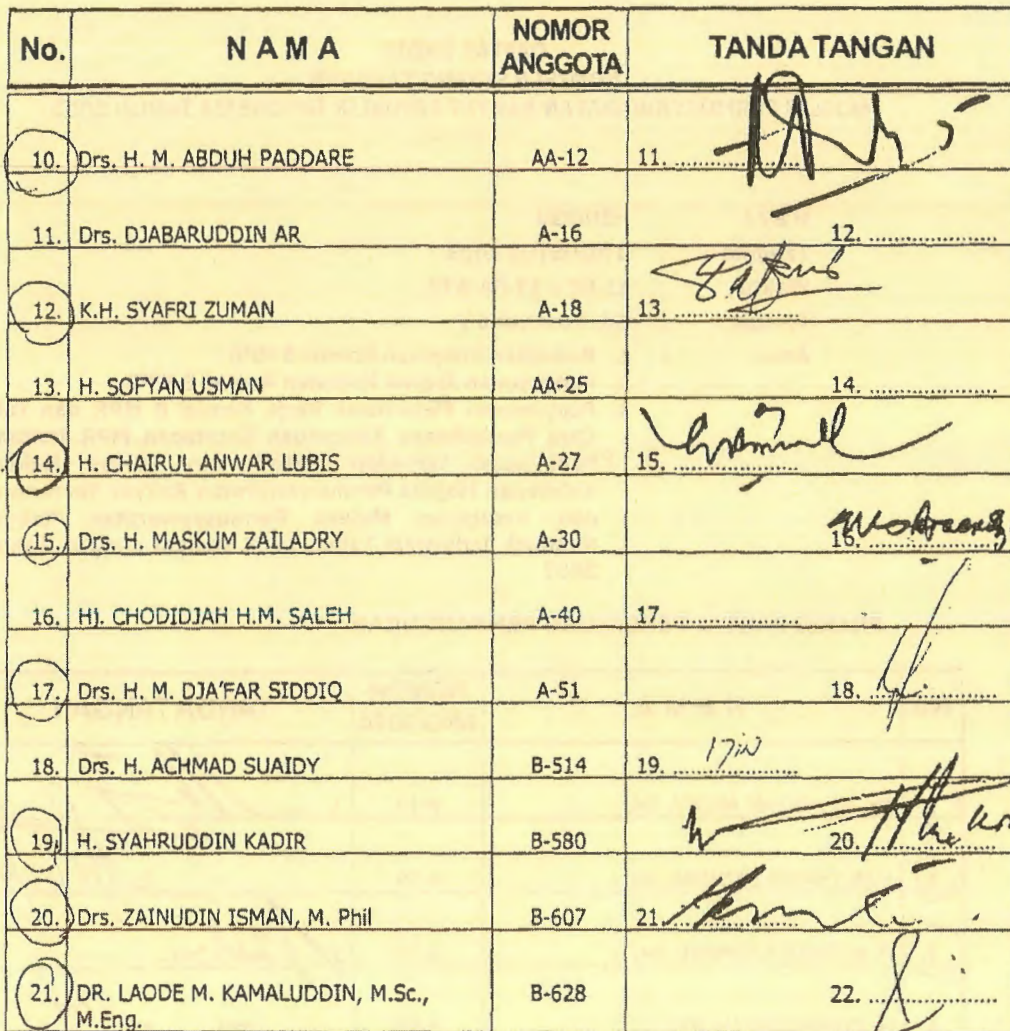 No. N A M A NOMOR ANGGOTA TANDA TANGAN
10. Drs. H. M. ABDUH PADDARE AA-12 11. ....................
11. Drs. DJABARUDDIN AR A-16 12. ....................
12. K.H. SYAFRI ZUMAN A-18 13. ....................
13. H. SOFYAN USMAN AA-25 14. ....................
14. H. CHAIRUL ANWAR LUBIS A-27 15. ....................
15. Drs. H. MASKUM ZAILADRY A-30 16. ....................
16. Hj. CHODIDJAH H.M. SALEH A-40 17. ....................
17. Drs. H. M. DJA'FAR SIDDIQ A-51 18. ....................
18. Drs. H. ACHMAD SUAIDY B-514 19. ....................
19. H. SYAHRUDDIN KADIR B-580 20. ....................
20. Drs. ZAINUDIN ISMAN, M. Phil B-607 21. ....................
21. DR. LAODE M. KAMALUDDIN, M.Sc., M.Eng. B-628 22. ....................